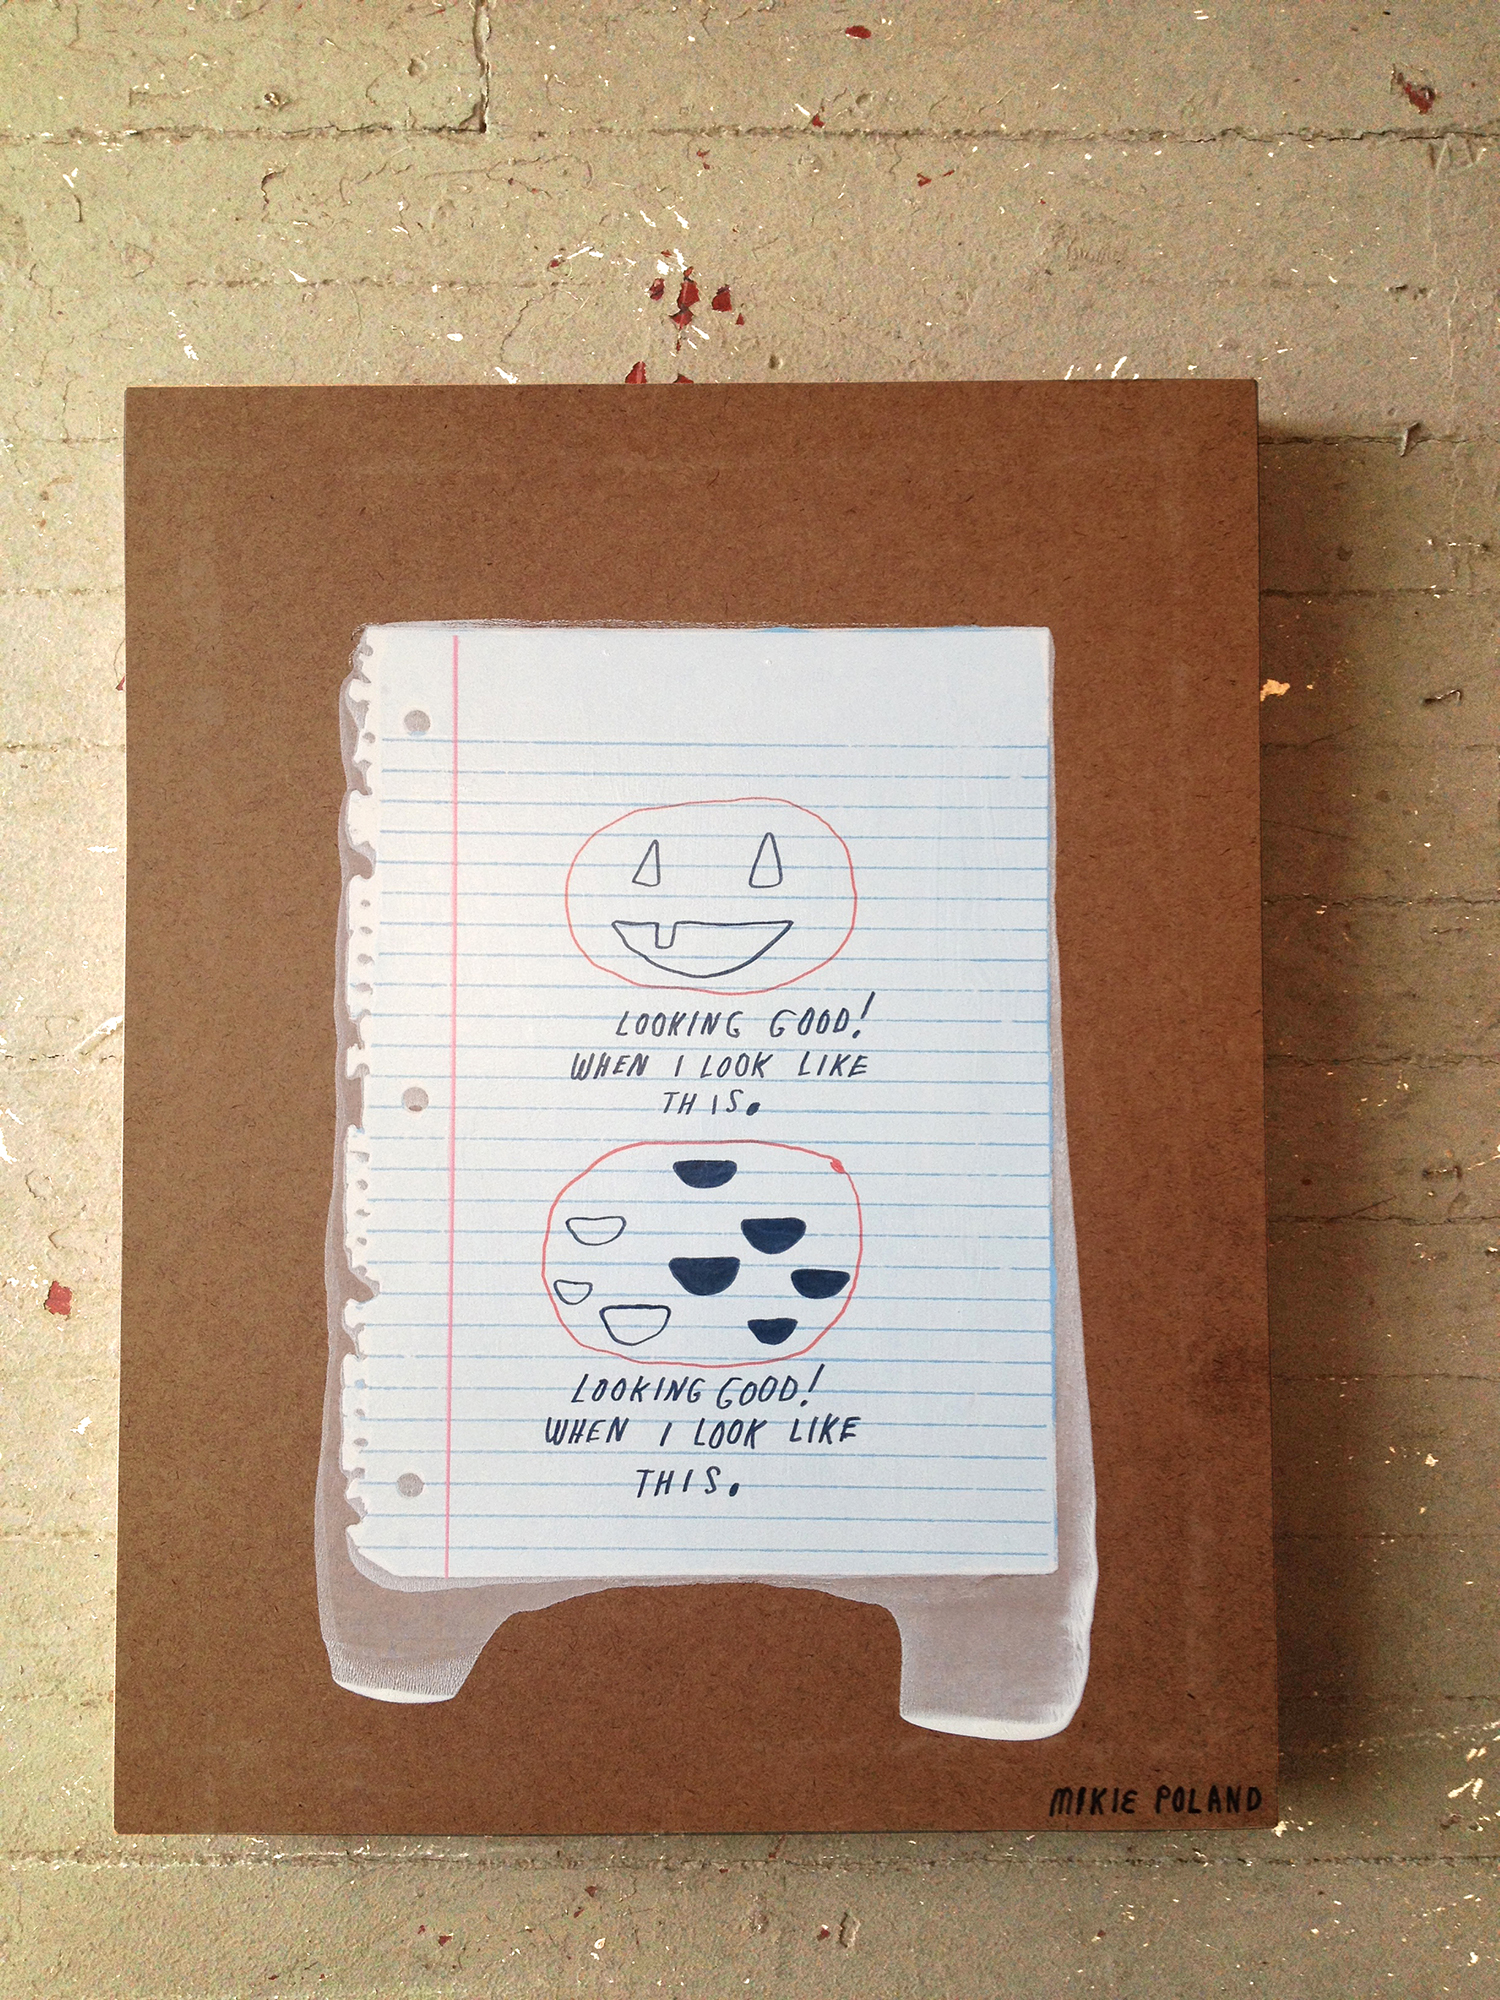 LOOKING GOOD!
WHEN I LOOK LIKE
THIS.
LOOKING GOOD!
WHEN I LOOK LIKE
THIS.
MIKIE POLAND